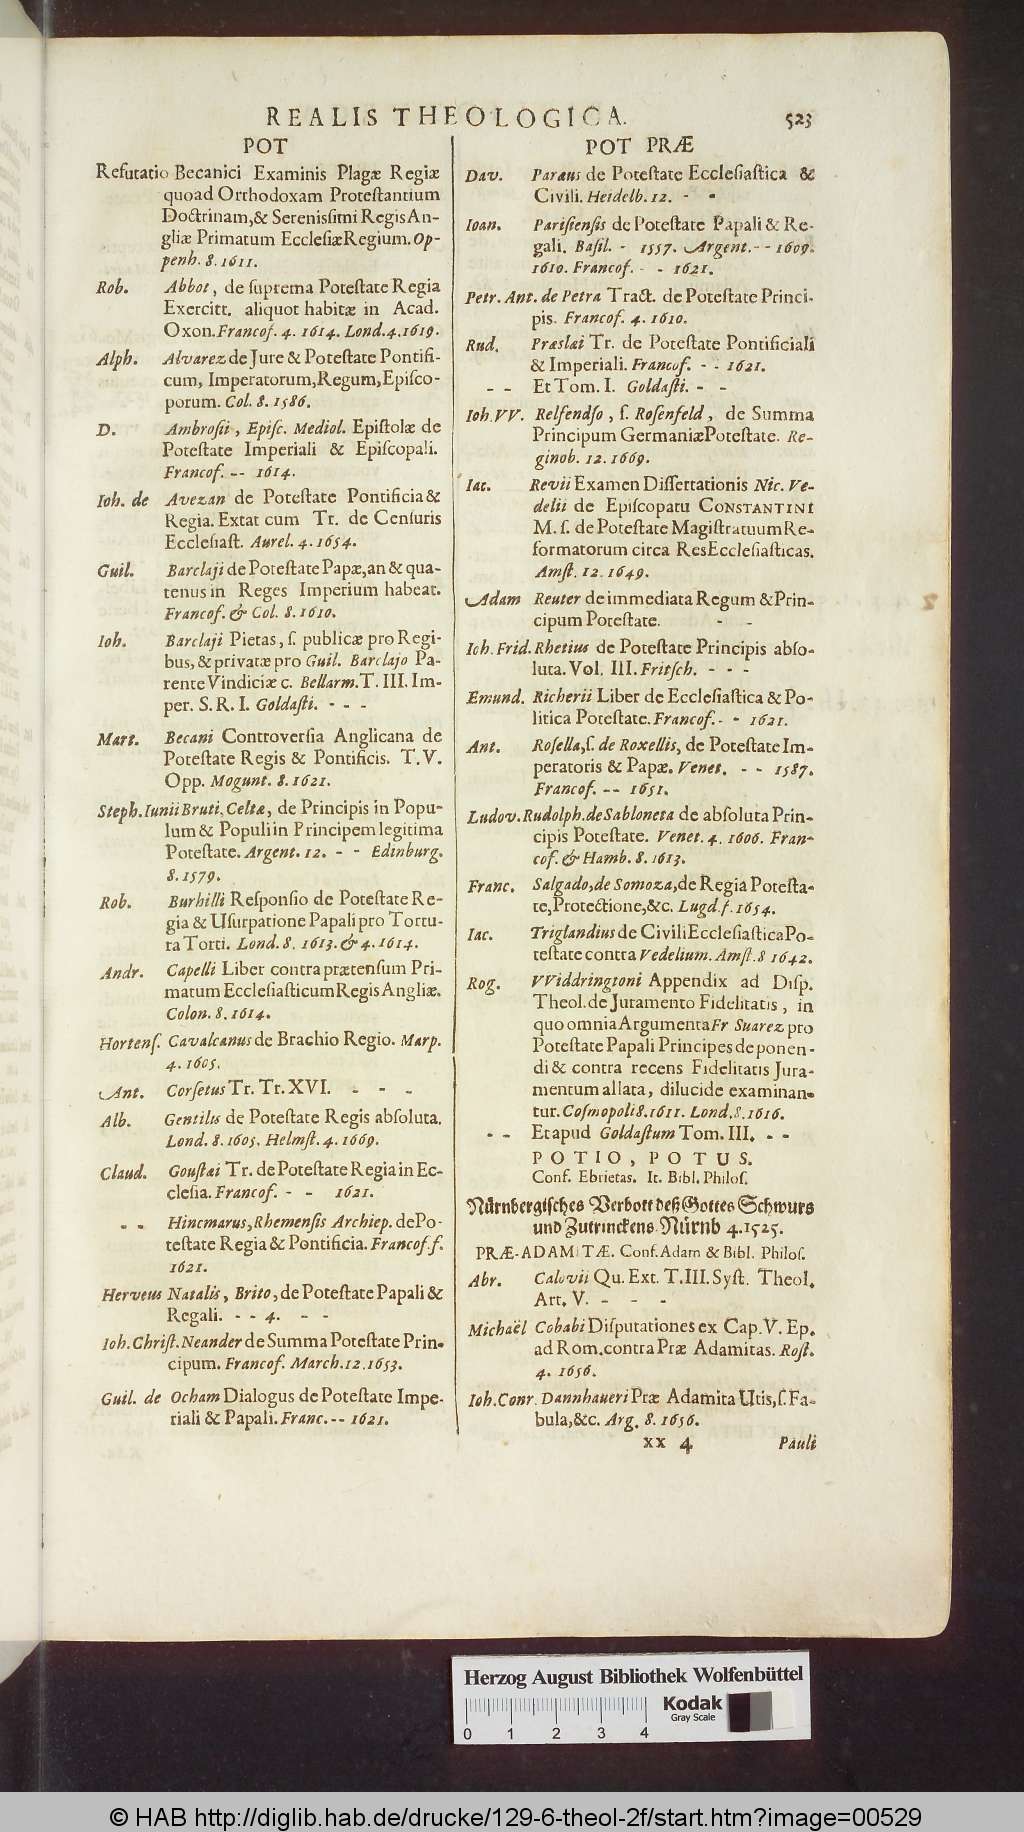 REALIS THEOLOGICA.
523
POT
Refutatio Becanici Examinis Plagæ Regiæ
quoad Orthodoxam Protestantium
Doctrinam, & Serenissimi Regis An-
gliæ Primatum Ecclesiæ Regium. Op-
penh. 8. 1611.
Rob. Abbot, de suprema Potestate Regia
Exercitt. aliquot habitæ in Acad.
Oxon. Francof. 4. 1614. Lond. 4. 1619.
Alph. Alvarez de Jure & Potestate Pontifi-
cum, Imperatorum, Regum, Episco-
porum. Col. 8. 1586.
D. Ambrosii, Episc. Mediol. Epistolæ de
Potestate Imperiali & Episcopali.
Francof. -- 1614.
Ioh. de Avezan de Potestate Pontificia &
Regia. Extat cum Tr. de Censuris
Ecclesiast. Aurel. 4. 1654.
Guil. Barclaji de Potestate Papæ, an & qua-
tenus in Reges Imperium habeat.
Francof. & Col. 8. 1610.
Ioh. Barclaji Pietas, s. publicæ pro Regi-
bus, & privatæ pro Guil. Barclajo Pa-
rente Vindiciæ c. Bellarm. T. III. Im-
per. S. R. I. Goldasti. - - -
Mart. Becani Controversia Anglicana de
Potestate Regis & Pontificis. T. V.
Opp. Mogunt. 8. 1621.
Steph. Iunii Bruti, Celtæ, de Principis in Popu-
lum & Populi in Principem legitima
Potestate. Argent. 12. - - Edinburg.
8. 1579.
Rob. Burhilli Responsio de Potestate Re-
gia & Usurpatione Papali pro Tortu-
ra Torti. Lond. 8. 1613. & 4. 1614.
Andr. Capelli Liber contra prætensum Pri-
matum Ecclesiasticum Regis Angliæ.
Colon. 8. 1614.
Hortens. Cavalcanus de Brachio Regio. Marp.
4. 1605.
Ant. Corsetus Tr. Tr. XVI. - - -
Alb. Gentilis de Potestate Regis absoluta.
Lond. 8. 1605. Helmst. 4. 1669.
Claud. Goustai Tr. de Potestate Regia in Ec-
clesia. Francof. - - 1621.
- - Hincmarus, Rhemensis Archiep. de Po-
testate Regia & Pontificia. Francof. f.
1621.
Herveus Natalis, Brito, de Potestate Papali &
Regali. - - 4. - -
Ioh. Christ. Neander de Summa Potestate Prin-
cipum. Francof. March. 12. 1653.
Guil. de Ocham Dialogus de Potestate Impe-
riali & Papali. Franc. -- 1621.
POT PRÆ
Dav. Paræus de Potestate Ecclesiastica &
Civili. Heidelb. 12. - -
Ioan. Parisiensis de Potestate Papali & Re-
gali. Basil. - 1557. Argent. - - 1609.
1610. Francof. - - 1621.
Petr. Ant. de Petra Tract. de Potestate Princi-
pis. Francof. 4. 1610.
Rud. Præslai Tr. de Potestate Pontificiali
& Imperiali. Francof. - - 1621.
- - Et Tom. I. Goldasti. - -
Ioh. VV. Relfendso, s. Rosenfeld, de Summa
Principum Germaniæ Potestate. Re-
ginob. 12. 1669.
Iac. Revii Examen Dissertationis Nic. Ve-
delii de Episcopatu CONSTANTINI
M. s. de Potestate Magistratuum Re-
formatorum circa Res Ecclesiasticas.
Amst. 12. 1649.
Adam Reuter de immediata Regum & Prin-
cipum Potestate. - -
Ioh. Frid. Rhetius de Potestate Principis abso-
luta. Vol. III. Fritsch. - - -
Emund. Richerii Liber de Ecclesiastica & Po-
litica Potestate. Francof. - - 1621.
Ant. Rosella, s. de Roxellis, de Potestate Im-
peratoris & Papæ. Venet. - - 1587.
Francof. -- 1651.
Ludov. Rudolph. de Sabloneta de absoluta Prin-
cipis Potestate. Venet. 4. 1606. Fran-
cof. & Hamb. 8. 1613.
Franc. Salgado, de Somoza, de Regia Potesta-
te, Protectione, &c. Lugd. f. 1654.
Iac. Triglandius de Civili Ecclesiastica Po-
testate contra Vedelium. Amst. 8 1642.
Rog. VViddringtoni Appendix ad Disp.
Theol. de Juramento Fidelitatis, in
quo omnia Argumenta Fr Suarez pro
Potestate Papali Principes deponen-
di & contra recens Fidelitatis Jura-
mentum allata, dilucide examinan-
tur. Cosmopoli 8. 1611. Lond. 8. 1616.
- - Et apud Goldastum Tom. III. - -
POTIO, POTUS.
Conf. Ebrietas. It. Bibl. Philos.
Nürnbergisches Verbott deß Gottes Schwurs
und Zutrinckens Nürnb 4. 1525.
PRÆ-ADAMITÆ. Conf. Adam & Bibl. Philos.
Abr. Calovii Qu. Ext. T. III. Syst. Theol.
Art. V. - - -
Michaël Cobabi Disputationes ex Cap. V. Ep.
ad Rom. contra Præ Adamitas. Rost.
4. 1656.
Ioh. Conr. Dannhaueri Præ Adamita Utis, s. Fa-
bula, &c. Arg. 8. 1656.
xx 4 Pauli
Herzog August Bibliothek Wolfenbüttel
Kodak
Gray Scale
0 1 2 3 4
© HAB http://diglib.hab.de/drucke/129-6-theol-2f/start.htm?image=00529